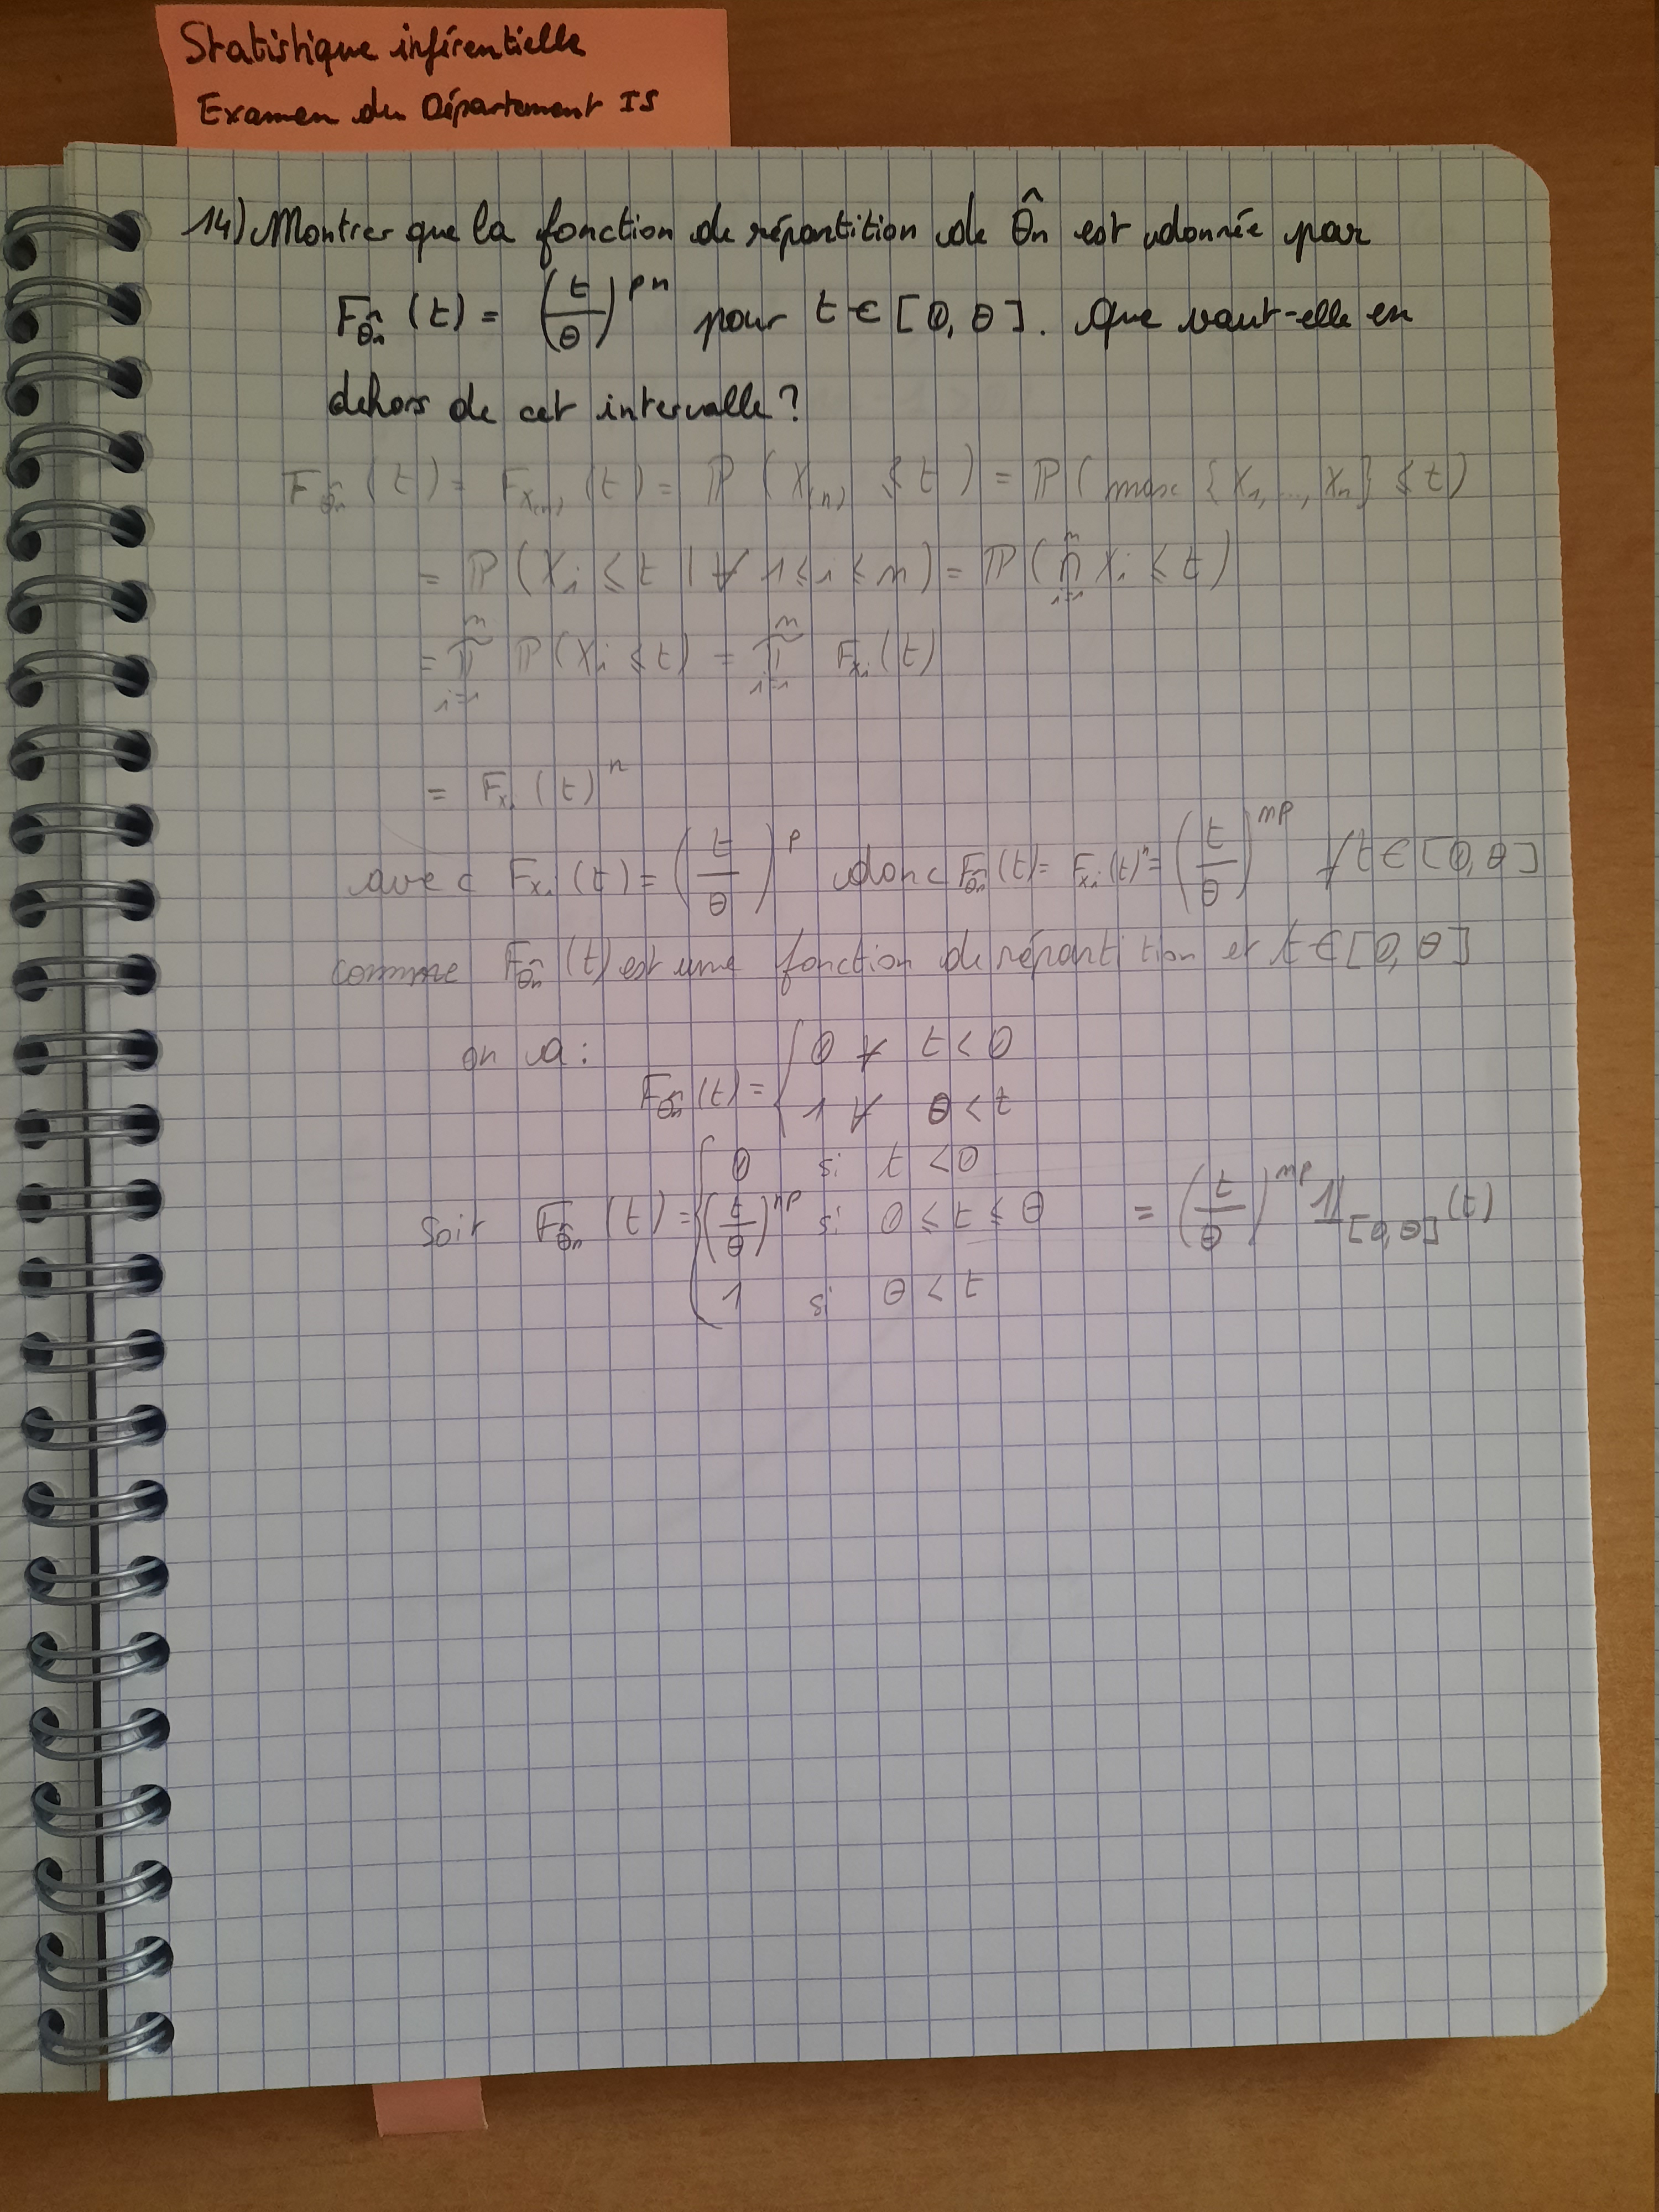 Statistique inférentielle
Examen du Département IS
14) Montrer que la fonction de répartition de θ̂n est donnée par
F_θ̂n (t) = (t/θ)^pn pour t ∈ [0, θ]. Que vaut-elle en
dehors de cet intervalle ?
F_θ̂n (t) = F_X(n) (t) = ℙ (X(n) ≤ t) = ℙ (max {X1, ..., Xn} ≤ t)
= ℙ (Xi ≤ t | ∀ 1 ≤ i ≤ n) = ℙ (⋂_{i=1}^n Xi ≤ t)
= ∏_{i=1}^n ℙ (Xi ≤ t) = ∏_{i=1}^n F_Xi (t)
= F_Xi (t)^n
avec F_Xi (t) = (t/θ)^p donc F_θ̂n (t) = F_Xi (t)^n = (t/θ)^np ∀ t ∈ [0, θ]
comme F_θ̂n (t) est une fonction de répartition et t ∈ [0, θ]
on a : F_θ̂n (t) = { 0 ∀ t < 0
1 ∀ θ < t
soit F_θ̂n (t) = { 0 si t < 0
(t/θ)^np si 0 ≤ t ≤ θ = (t/θ)^np 𝟙_[0,θ] (t)
1 si θ < t